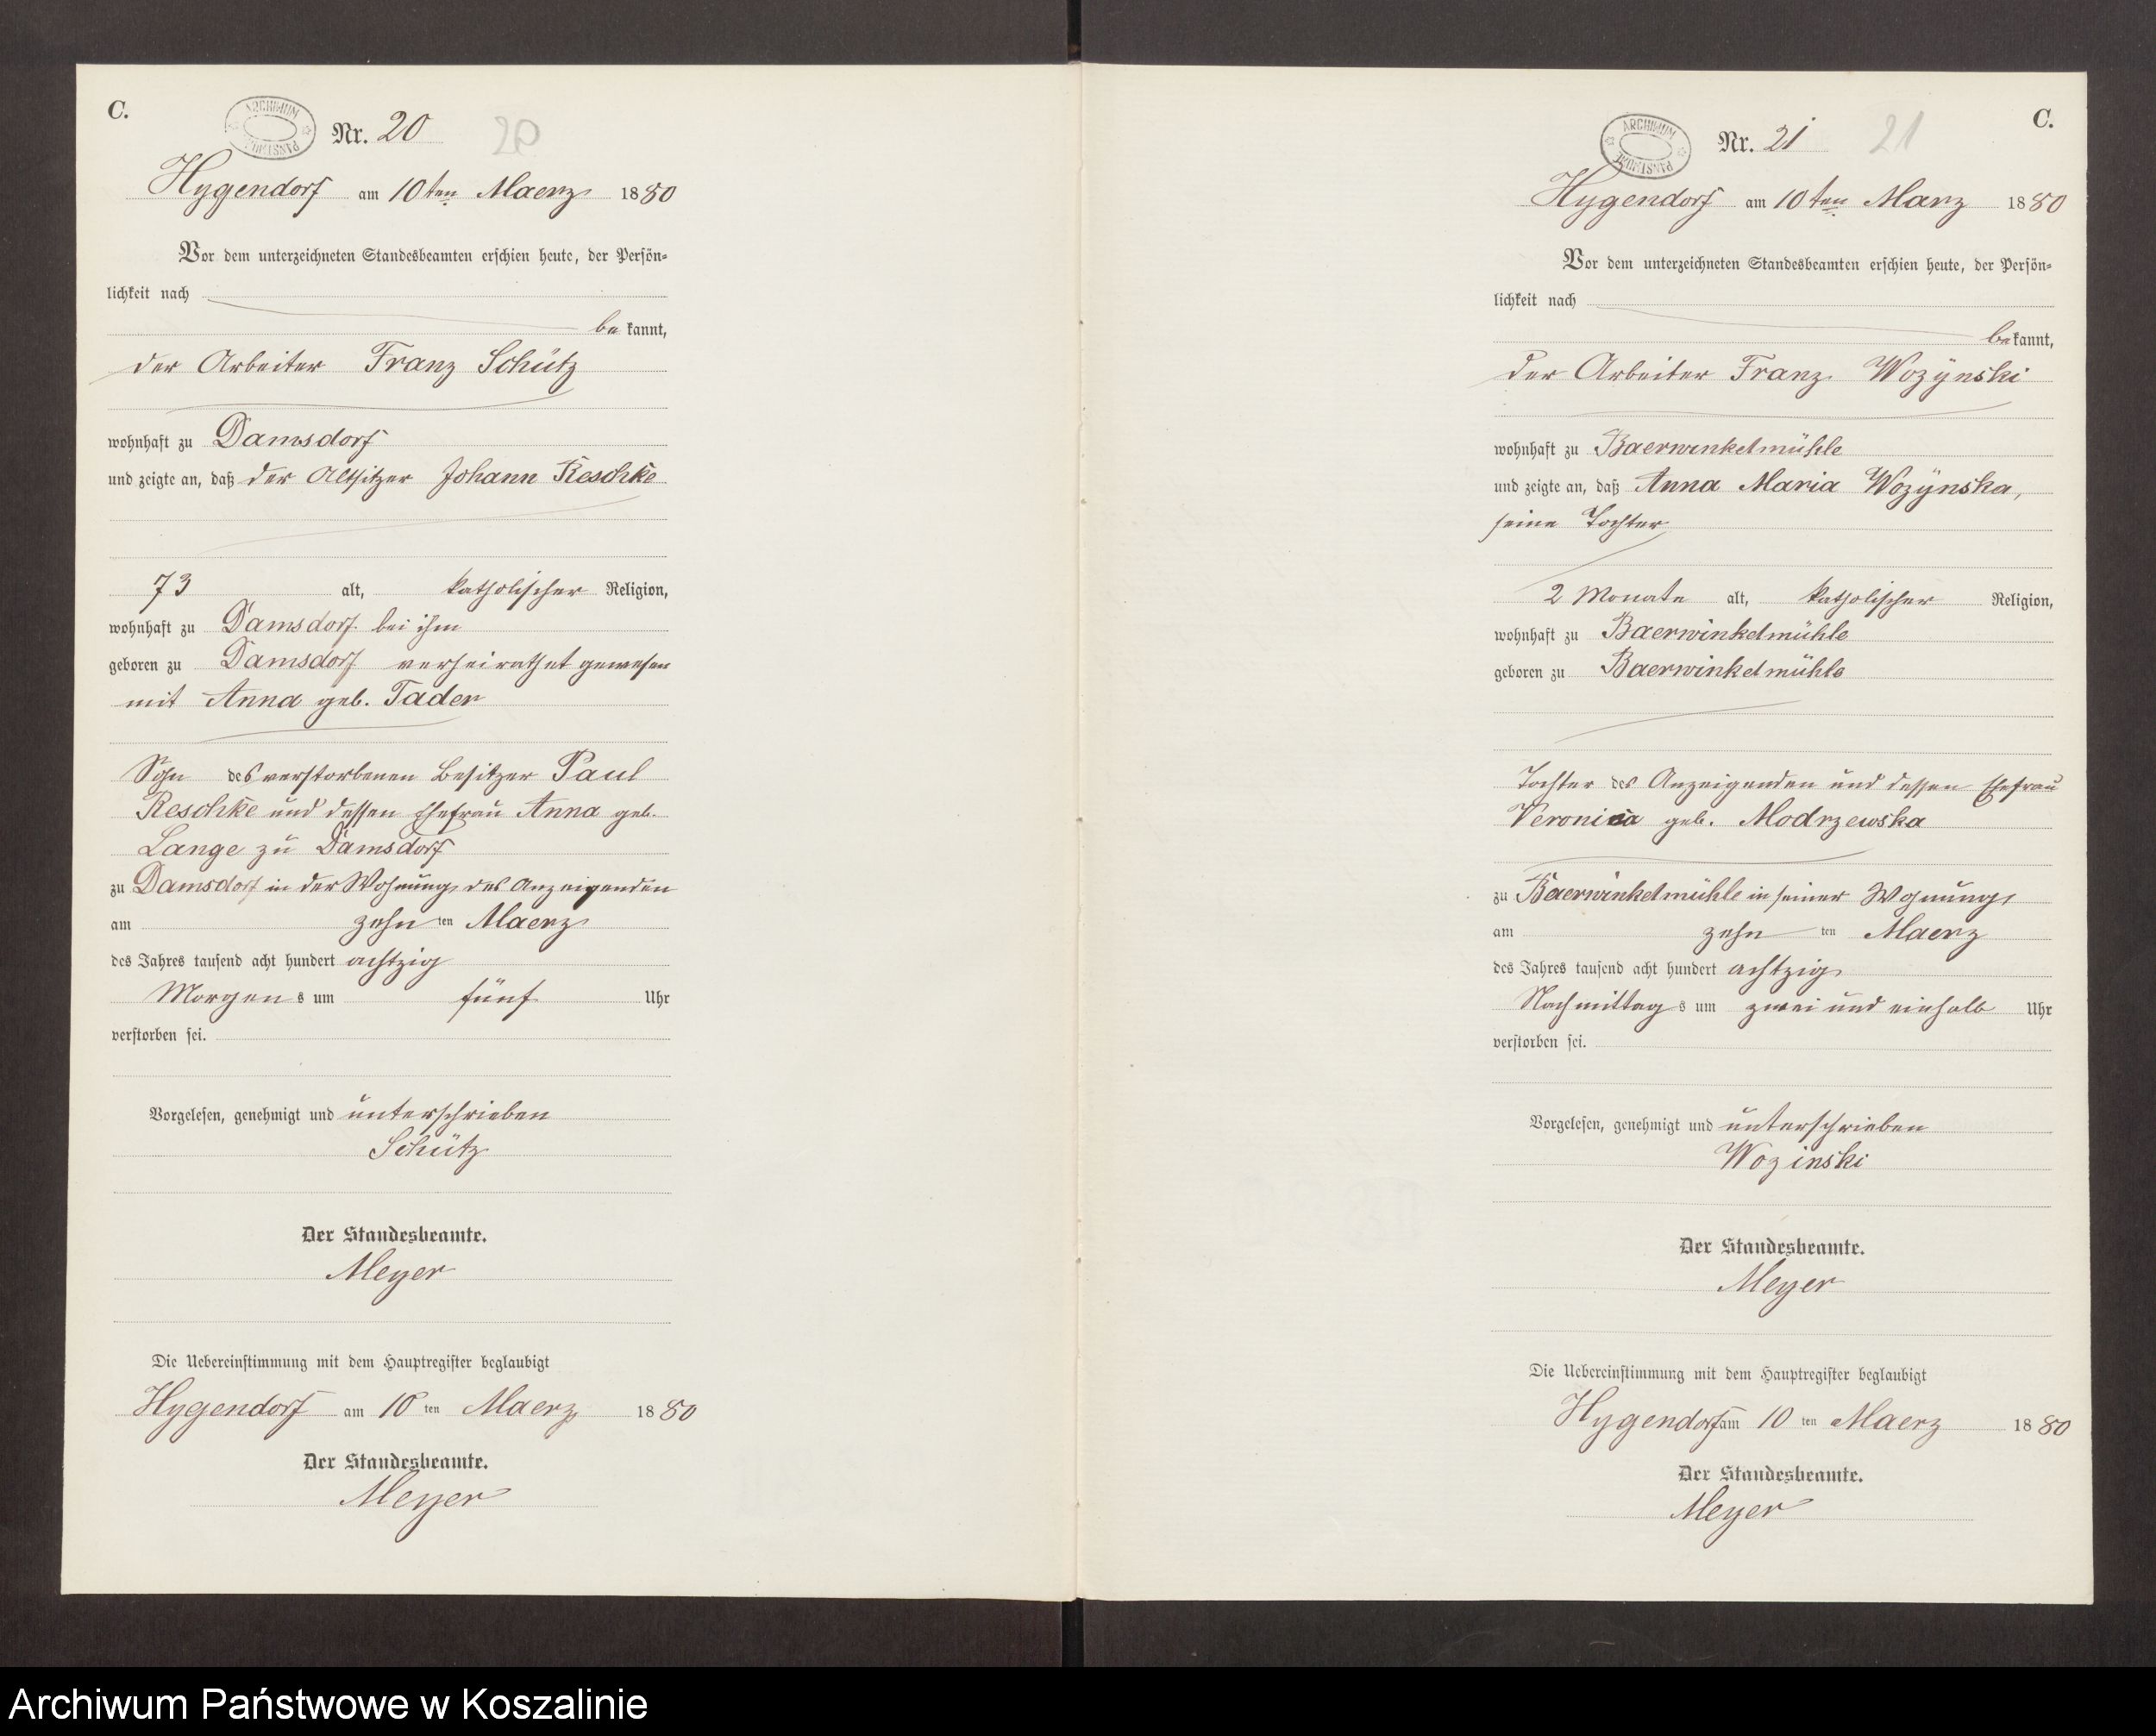 C.
ARCHIWUM PAŃSTWOWE
Nr. 20 20
Hygendorf am 10ten Maerz 1880
Vor dem unterzeichneten Standesbeamten erschien heute, der Persön-
lichkeit nach
be kannt,
der Arbeiter Franz Schütz
wohnhaft zu Damsdorf
und zeigte an, daß der Altsitzer Johann Reschke
73 alt, katholischer Religion,
wohnhaft zu Damsdorf bei ihm
geboren zu Damsdorf verheirathet gewesen
mit Anna geb. Tader
Sohn des verstorbenen Besitzer Paul
Reschke und dessen Ehefrau Anna geb.
Lange zu Damsdorf
zu Damsdorf in der Wohnung des Anzeigenden
am zehn ten Maerz
des Jahres tausend acht hundert achtzig
Morgen s um fünf Uhr
verstorben sei.
Vorgelesen, genehmigt und unterschrieben
Schütz
Der Standesbeamte.
Meyer
Die Uebereinstimmung mit dem Hauptregister beglaubigt
Hygendorf am 10 ten Maerz 1880
Der Standesbeamte.
Meyer
C.
ARCHIWUM PAŃSTWOWE
Nr. 21 21
Hygendorf am 10ten Marz 1880
Vor dem unterzeichneten Standesbeamten erschien heute, der Persön-
lichkeit nach
bekannt,
der Arbeiter Franz Wozÿnski
wohnhaft zu Baerwinkelmühle
und zeigte an, daß Anna Maria Wozÿnska,
seine Tochter
2 Monate alt, katholischer Religion,
wohnhaft zu Baerwinkelmühle
geboren zu Baerwinkelmühle
Tochter des Anzeigenden und dessen Ehefrau
Veronica geb. Modrzewska
zu Baerwinkelmühle in seiner Wohnung
am zehn ten Maerz
des Jahres tausend acht hundert achtzig
Nachmittag s um zwei und einhalb Uhr
verstorben sei.
Vorgelesen, genehmigt und unterschrieben
Wozinski
Der Standesbeamte.
Meyer
Die Uebereinstimmung mit dem Hauptregister beglaubigt
Hygendorf am 10 ten Maerz 1880
Der Standesbeamte.
Meyer
Archiwum Państwowe w Koszalinie